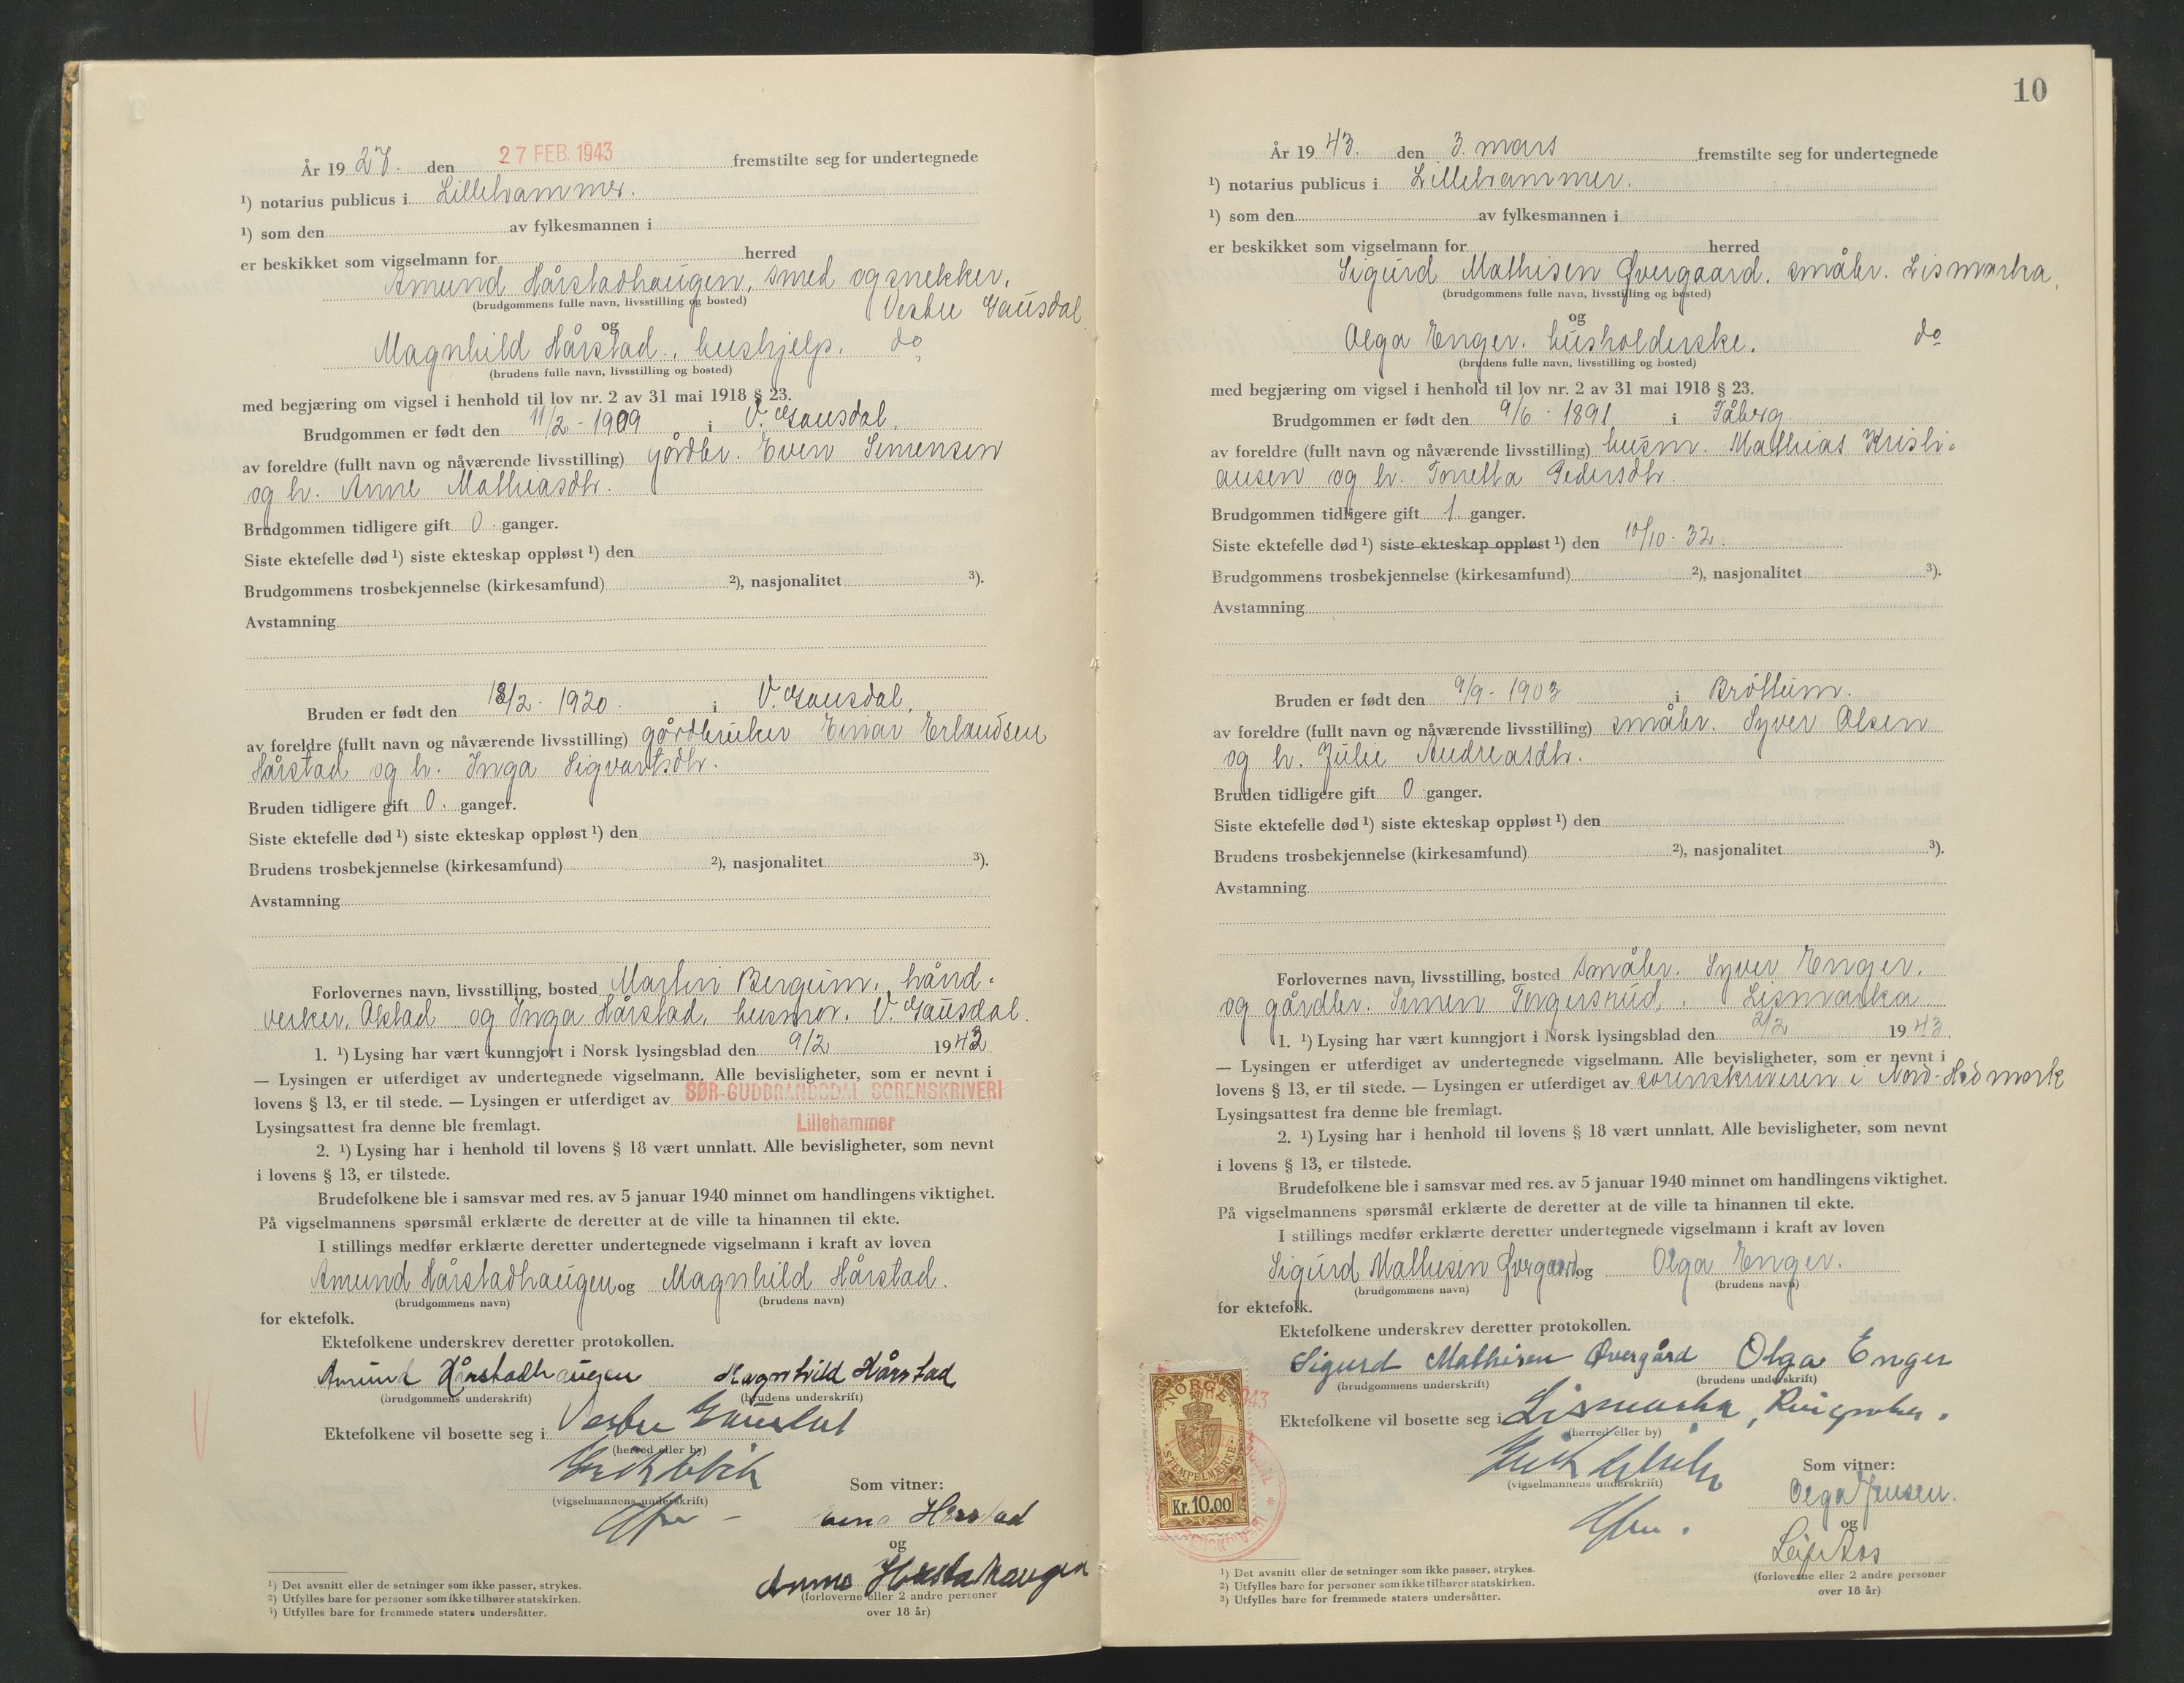 År 19 27. den 27 FEB. 1943 fremstilte seg for undertegnede
¹) notarius publicus i Lillehammer.
¹) som den av fylkesmannen i
er beskikket som vigselmann for herred
Amund Hårstadhaugen, smed og snekker,
(brudgommens fulle navn, livsstilling og bosted) Vestre Gausdal
og
Magnhild Hårstad, hushjelp. do
(brudens fulle navn, livsstilling og bosted)
med begjæring om vigsel i henhold til lov nr. 2 av 31 mai 1918 § 23.
Brudgommen er født den 11/2 - 1909 i V. Gausdal.
av foreldre (fullt navn og nåværende livsstilling) gårdbr. Even Simensen
og h. Anne Mathiasdtr.
Brudgommen tidligere gift 0 ganger.
Siste ektefelle død ¹) siste ekteskap oppløst ¹) den
Brudgommens trosbekjennelse (kirkesamfund) ²), nasjonalitet ³).
Avstamning
Bruden er født den 13/2 - 1920. i V. Gausdal.
av foreldre (fullt navn og nåværende livsstilling) gårdbruker Einar Erlandsen
Hårstad og h. Inga Sigvartsdtr.
Bruden tidligere gift 0. ganger.
Siste ektefelle død ¹) siste ekteskap oppløst ¹) den
Brudens trosbekjennelse (kirkesamfund) ²), nasjonalitet ³).
Avstamning
Forlovernes navn, livsstilling, bosted Martin Bergum, hånd-
verker, Olstad og Inga Hårstad, husmor. V. Gausdal.
1. ¹) Lysing har vært kunngjort i Norsk lysingsblad den 9/2 1943
— Lysingen er utferdiget av undertegnede vigselmann. Alle bevisligheter, som er nevnt i
lovens § 13, er til stede. — Lysingen er utferdiget av SØR-GUDBRANDSDAL SORENSKRIVERI
Lysingsattest fra denne ble fremlagt. Lillehammer
2. ¹) Lysing har i henhold til lovens § 18 vært unnlatt. Alle bevisligheter, som nevnt
i lovens § 13, er tilstede.
Brudefolkene ble i samsvar med res. av 5 januar 1940 minnet om handlingens viktighet.
På vigselmannens spørsmål erklærte de deretter at de ville ta hinannen til ekte.
I stillings medfør erklærte deretter undertegnede vigselmann i kraft av loven
Amund Hårstadhaugen og Magnhild Hårstad.
(brudgommens navn) (brudens navn)
for ektefolk.
Ektefolkene underskrev deretter protokollen.
Amund Hårstadhaugen Magnhild Hårstad
(brudgommens underskrift) (brudens underskrift)
Ektefolkene vil bosette seg i Vestre Gausdal
(herred eller by)
(vigselmannens underskrift)
Som vitner:
og
Anne Hårstadhaugen
(forloverne eller 2 andre personer
over 18 år)
¹) Det avsnitt eller de setninger som ikke passer, strykes.
²) Utfylles bare for personer som ikke tilhører statskirken.
³) Utfylles bare for fremmede staters undersåtter.
10
År 19 43. den 3. mars fremstilte seg for undertegnede
¹) notarius publicus i Lillehammer.
¹) som den av fylkesmannen i
er beskikket som vigselmann for herred
Sigurd Mathisen Øvergaard. småbr. Lismarka,
(brudgommens fulle navn, livsstilling og bosted)
og
Olga Enger. husholderske. do
(brudens fulle navn, livsstilling og bosted)
med begjæring om vigsel i henhold til lov nr. 2 av 31 mai 1918 § 23.
Brudgommen er født den 9/6 - 1891 i Fåberg
av foreldre (fullt navn og nåværende livsstilling) husm. Mathias Kristi-
ansen og h. Tonetta Pedersdtr.
Brudgommen tidligere gift 1. ganger.
Siste ektefelle død ¹) siste ekteskap oppløst ¹) den 10/10 - 32.
Brudgommens trosbekjennelse (kirkesamfund) ²), nasjonalitet ³).
Avstamning
Bruden er født den 9/9 - 1903 i Brøttum.
av foreldre (fullt navn og nåværende livsstilling) småbr. Syver Olsen
og h. Julie Andreasdtr.
Bruden tidligere gift 0 ganger.
Siste ektefelle død ¹) siste ekteskap oppløst ¹) den
Brudens trosbekjennelse (kirkesamfund) ²), nasjonalitet ³).
Avstamning
Forlovernes navn, livsstilling, bosted Småbr. Syver Enger.
og gårdbr. Simen Torgersrud, Lismarka
1. ¹) Lysing har vært kunngjort i Norsk lysingsblad den 2/2 1943.
— Lysingen er utferdiget av undertegnede vigselmann. Alle bevisligheter, som er nevnt i
lovens § 13, er til stede. — Lysingen er utferdiget av sorenskriveren i Nord-Hedmark
Lysingsattest fra denne ble fremlagt.
2. ¹) Lysing har i henhold til lovens § 18 vært unnlatt. Alle bevisligheter, som nevnt
i lovens § 13, er tilstede.
Brudefolkene ble i samsvar med res. av 5 januar 1940 minnet om handlingens viktighet.
På vigselmannens spørsmål erklærte de deretter at de ville ta hinannen til ekte.
I stillings medfør erklærte deretter undertegnede vigselmann i kraft av loven
Sigurd Mathisen Øvergaard og Olga Enger.
(brudgommens navn) (brudens navn)
for ektefolk.
Ektefolkene underskrev deretter protokollen.
Sigurd Mathisen Øvergård Olga Enger
(brudgommens underskrift) (brudens underskrift)
Ektefolkene vil bosette seg i Lismarka, Ringsaker.
(herred eller by)
(vigselmannens underskrift)
Som vitner:
Olga Jensen.
og
Leif Aas
(forloverne eller 2 andre personer
over 18 år)
NORGE
STEMPELMERKE
Kr. 10.00
¹) Det avsnitt eller de setninger som ikke passer, strykes.
²) Utfylles bare for personer som ikke tilhører statskirken.
³) Utfylles bare for fremmede staters undersåtter.